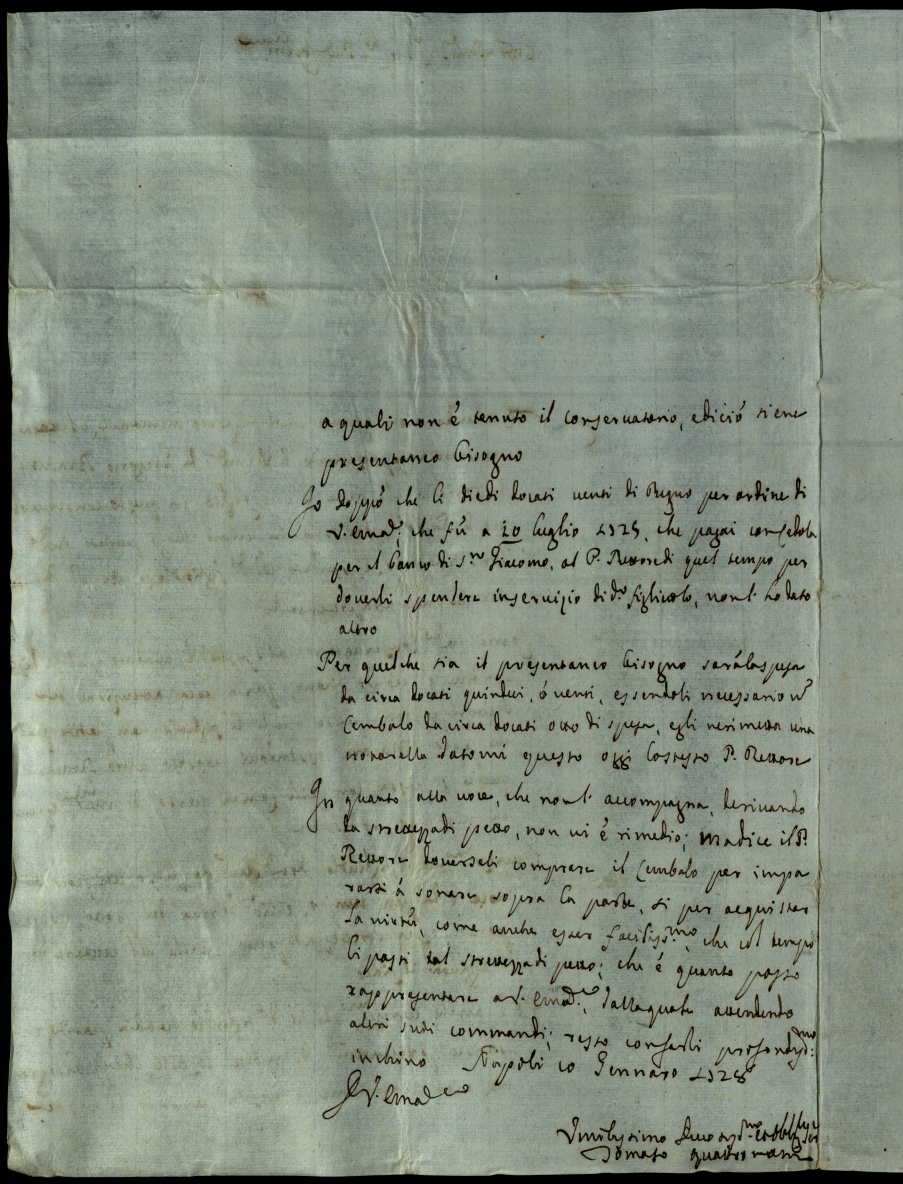 a quali non é tenuto il conservatorio, e diciò tiene
presentaneo bisogno
Io doppò che li diedi docati venti di Regno per ordine di
V. Emza; che fù a 20 luglio 1725, che pagai con fede
per il banco di S.n Giacomo, al P. Rettore di quel tempo per
doverli spendere in servizio di d.o figliuolo, non l' ho dato
altro
Per quel che sia il presentaneo bisogno sarà la spesa
da circa docati quindici, ó venti, essendoli necessario un
Cembalo da circa docati otto di spesa, egli ne rimette una
notarella datomi questo oggi Costesto P. Rettore
In quanto alla voce, che non l' accompagna, derivando
da strettezza di petto, non vi é rimedio; ma dice il P.
Rettore doverseli comprare il Cembalo per impa
rarsi á sonare sopra la parte, si per acquistar
la virtù, come anche esser faciliss.mo, che col tempo
li passi tal strettezza di petto; che é quanto posso
rappresentare a V. Emza; dalla quale attendendo
altri suoi commandi; resto con farli profondiss.mo
inchino Napoli 10 Gennaro 1728
D. V. Emza
Umilissimo Devotiss.mo et Obblig.
Donato Quattromani